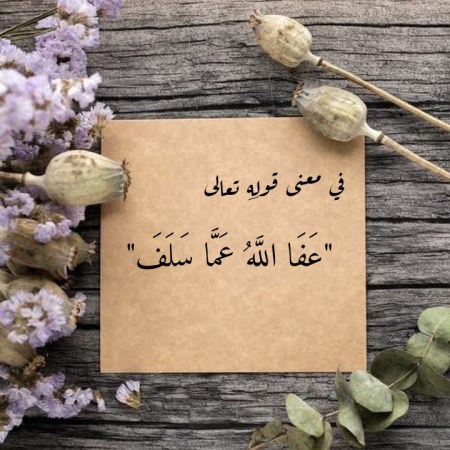 في معنى قولِهِ تعالى
"عَفَا اللَّهُ عَمَّا سَلَفَ"